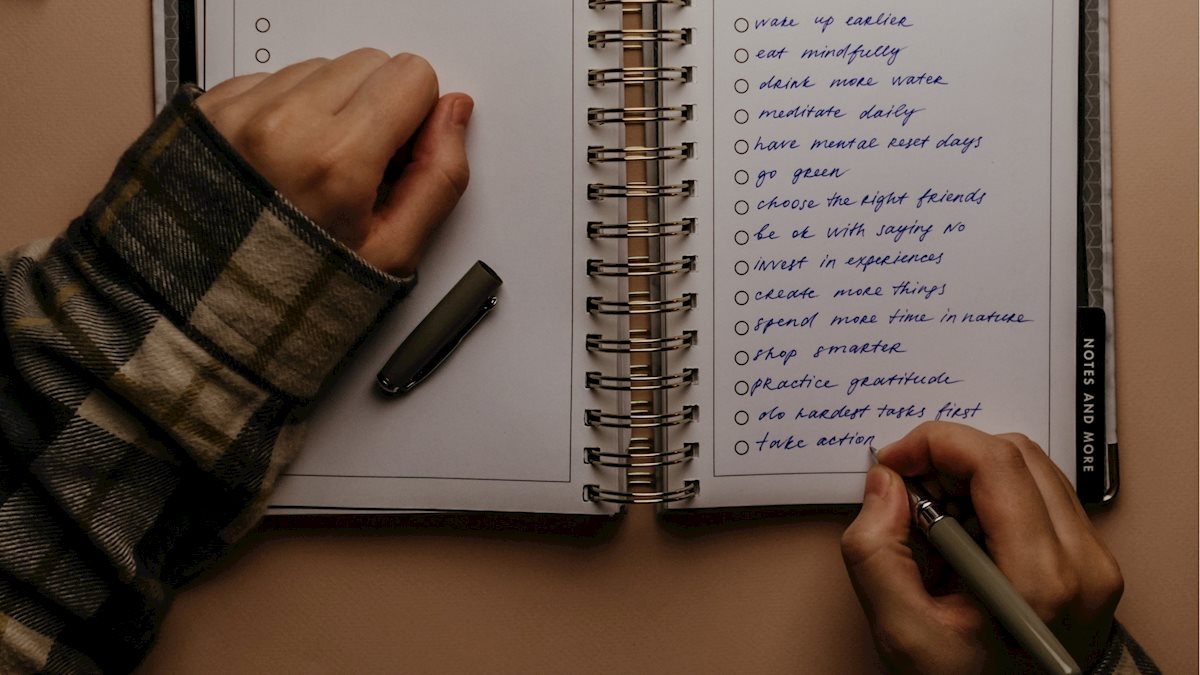 wake up earlier
eat mindfully
drink more water
meditate daily
have mental reset days
go green
choose the right friends
be ok with saying no
invest in experiences
create more things
spend more time in nature
shop smarter
practice gratitude
do hardest tasks first
take action
NOTES AND MORE